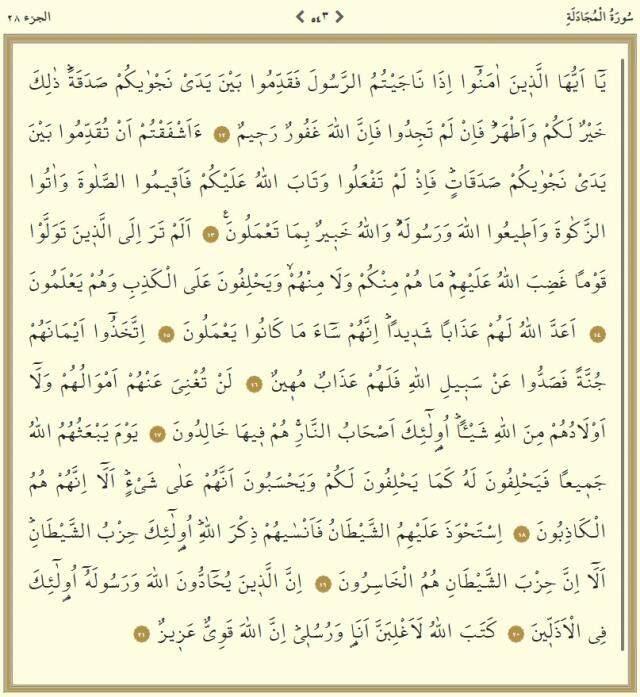 سُورَةُ الْمُجَادَلَةِ ٥٤٣ الجزء ٢٨
يَٓا اَيُّهَا الَّذ۪ينَ اٰمَنُٓوا اِذَا نَاجَيْتُمُ الرَّسُولَ فَقَدِّمُوا بَيْنَ يَدَيْ نَجْوٰيكُمْ صَدَقَةًۜ ذٰلِكَ
خَيْرٌ لَكُمْ وَاَطْهَرُۜ فَاِنْ لَمْ تَجِدُوا فَاِنَّ اللّٰهَ غَفُورٌ رَح۪يمٌ ١٢ ءَاَشْفَقْتُمْ اَنْ تُقَدِّمُوا بَيْنَ
يَدَيْ نَجْوٰيكُمْ صَدَقَاتٍۜ فَاِذْ لَمْ تَفْعَلُوا وَتَابَ اللّٰهُ عَلَيْكُمْ فَاَق۪يمُوا الصَّلٰوةَ وَاٰتُوا
الزَّكٰوةَ وَاَط۪يعُوا اللّٰهَ وَرَسُولَهُۜ وَاللّٰهُ خَب۪يرٌ بِمَا تَعْمَلُونَ۟ ١٣ اَلَمْ تَرَ اِلَى الَّذ۪ينَ تَوَلَّوْا
قَوْمًا غَضِبَ اللّٰهُ عَلَيْهِمْۜ مَا هُمْ مِنْكُمْ وَلَا مِنْهُمْۙ وَيَحْلِفُونَ عَلَى الْكَذِبِ وَهُمْ يَعْلَمُونَ
١٤ اَعَدَّ اللّٰهُ لَهُمْ عَذَابًا شَد۪يدًاۜ اِنَّهُمْ سَٓاءَ مَا كَانُوا يَعْمَلُونَ ١٥ اِتَّخَذُٓوا اَيْمَانَهُمْ
جُنَّةً فَصَدُّوا عَنْ سَب۪يلِ اللّٰهِ فَلَهُمْ عَذَابٌ مُه۪ينٌ ١٦ لَنْ تُغْنِيَ عَنْهُمْ اَمْوَالُهُمْ وَلَٓا
اَوْلَادُهُمْ مِنَ اللّٰهِ شَيْـًٔاۜ اُو۬لٰٓئِكَ اَصْحَابُ النَّارِۜ هُمْ ف۪يهَا خَالِدُونَ ١٧ يَوْمَ يَبْعَثُهُمُ اللّٰهُ
جَم۪يعًا فَيَحْلِفُونَ لَهُ كَمَا يَحْلِفُونَ لَكُمْ وَيَحْسَبُونَ اَنَّهُمْ عَلٰى شَيْءٍۜ اَلَٓا اِنَّهُمْ هُمُ
الْكَاذِبُونَ ١٨ اِسْتَحْوَذَ عَلَيْهِمُ الشَّيْطَانُ فَاَنْسٰيهُمْ ذِكْرَ اللّٰهِۜ اُو۬لٰٓئِكَ حِزْبُ الشَّيْطَانِۜ
اَلَٓا اِنَّ حِزْبَ الشَّيْطَانِ هُمُ الْخَاسِرُونَ ١٩ اِنَّ الَّذ۪ينَ يُحَٓادُّونَ اللّٰهَ وَرَسُولَهُٓ اُو۬لٰٓئِكَ
فِي الْاَذَلّ۪ينَ ٢٠ كَتَبَ اللّٰهُ لَاَغْلِبَنَّ اَنَا۬ وَرُسُل۪يۜ اِنَّ اللّٰهَ قَوِيٌّ عَز۪يزٌ ٢١